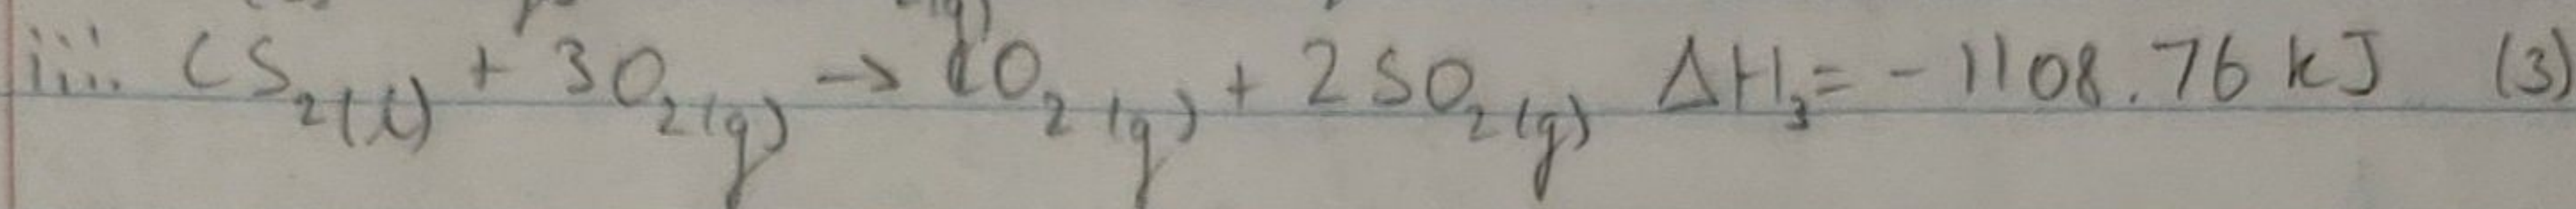 iii. CS₂(l) + 3O₂(g) → CO₂(g) + 2SO₂(g) ΔH₃ = -1108.76 kJ (3)